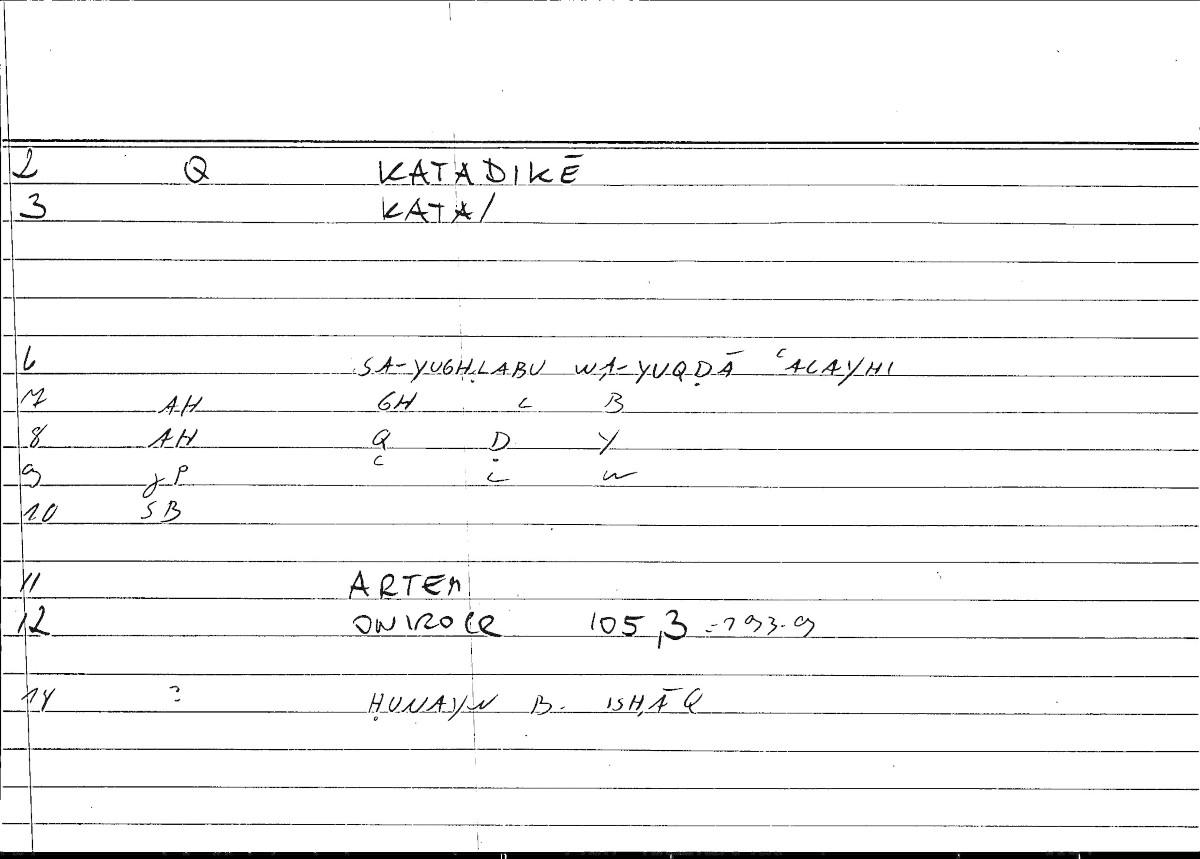 2 Q KATADIKĒ
3 KATA/
6 SA-YUGHLABU WA-YUQḌĀ ʿALAYHI
7 AH GH L B
8 AH Q Ḍ Y
9 JP ʿ L W
10 SB
11 ARTEM
12 ONIROCR 105,3 = 193.9
14 ? ḤUNAYN B. ISḤĀQ